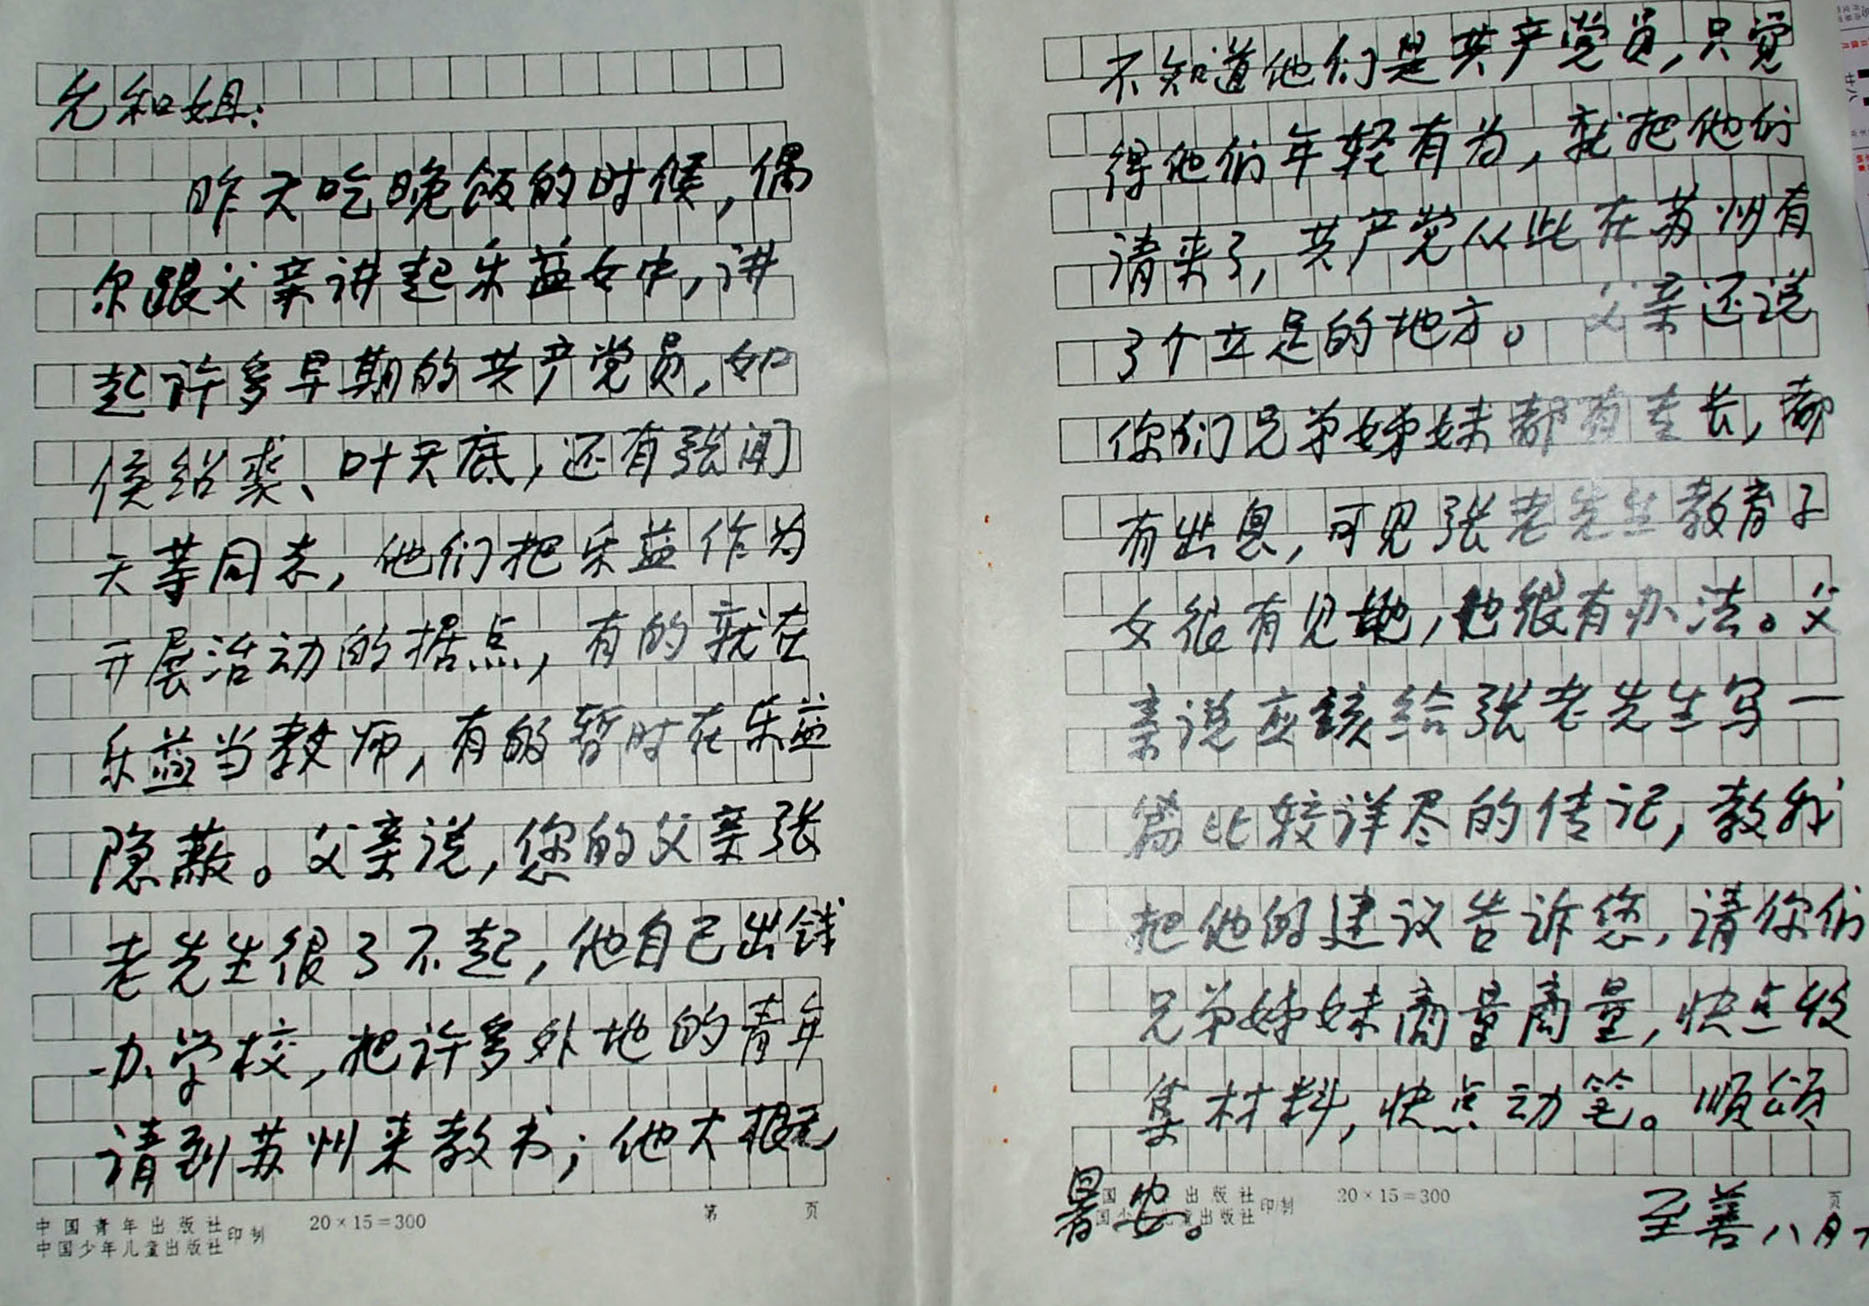 允和姐:
昨天吃晚饭的时候,偶
尔跟父亲讲起乐益女中,讲
起许多早期的共产党员,如
侯绍裘、叶天底,还有张闻
天等同志,他们把乐益作为
开展活动的据点,有的就在
乐益当教师,有的暂时在乐益
隐蔽。父亲说,您的父亲张
老先生很了不起,他自己出钱
办学校,把许多外地的青年
请到苏州来教书;他大概
中国青年出版社
中国少年儿童出版社 印制
20×15=300
第 页
不知道他们是共产党员,只觉
得他们年轻有为,就把他们
请来了,共产党从此在苏州有
了个立足的地方。父亲还说
你们兄弟姊妹都有专长,都
有出息,可见张老先生教育子
女很有见地,他很有办法。父
亲说应该给张老先生写一
篇比较详尽的传记,教我
把他的建议告诉您,请你们
兄弟姊妹商量商量,快点收
集材料,快点动笔。顺颂
暑安。
至善八月十
国 出版社
国少年儿童出版社 印制
20×15=300
页